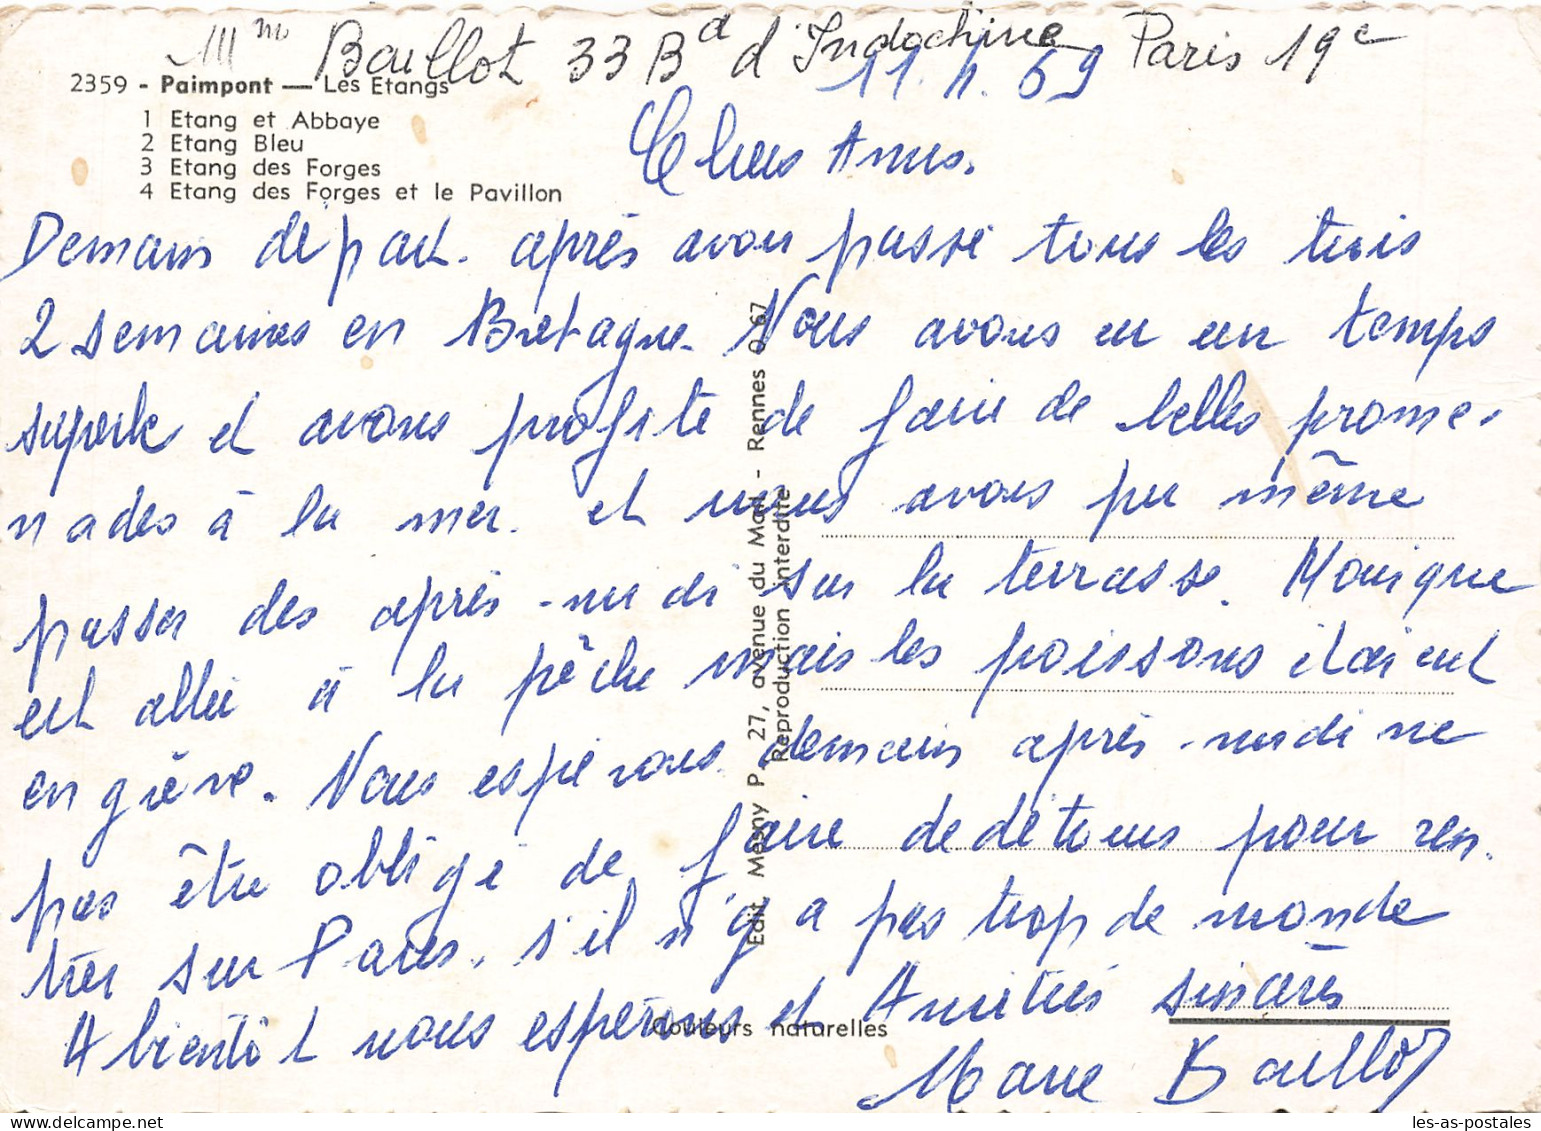 Mme Baillot 33 Bd d'Indochine Paris 19e
2359 - Paimpont — Les Etangs
1 Etang et Abbaye
2 Etang Bleu
3 Etang des Forges
4 Etang des Forges et le Pavillon
11. 4. 69
Chers Amis.
Demain départ. après avoir passé tous les trois
2 semaines en Bretagne. Nous avons eu un temps
superbe et avons profité de faire de belles prome-
nades à la mer. et nous avons pu même
passer des après-midi sur la terrasse. Monique
est allée à la pêche mais les poissons étaient
en grève. Nous espérons demain après-midi ne
pas être obligé de faire de détours pour ren-
trer sur Paris, s'il n'y a pas trop de monde
A bientôt nous espérons et Amitiés sincères
Marie Baillot
Edit. Mesny P. 27, avenue du Mail - Rennes Q 67
Reproduction interdite
Couleurs naturelles
les-as-postales.com